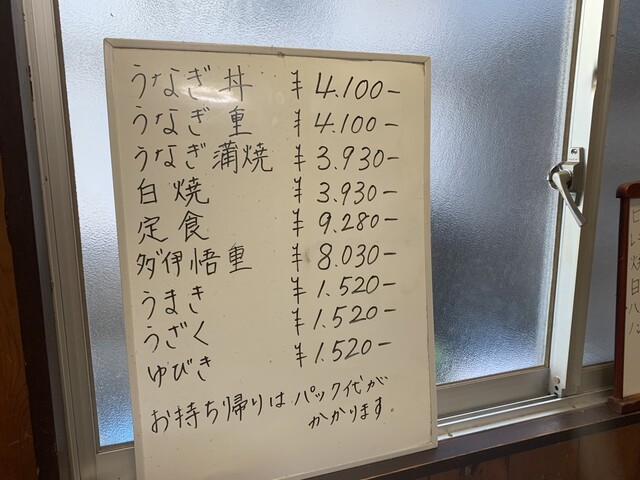 うなぎ丼 ¥4.100-
うなぎ重 ¥4.100-
うなぎ蒲焼 ¥3.930-
白焼 ¥3.930-
定食 ¥9.280-
タダ伊悟重 ¥8.030-
うまき ¥1.520-
うざく ¥1.520-
ゆびき ¥1.520-
お持ち帰りは パック代が
かかります。